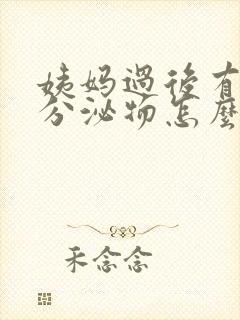 姨妈過後有
分泌物怎麼
禾念念